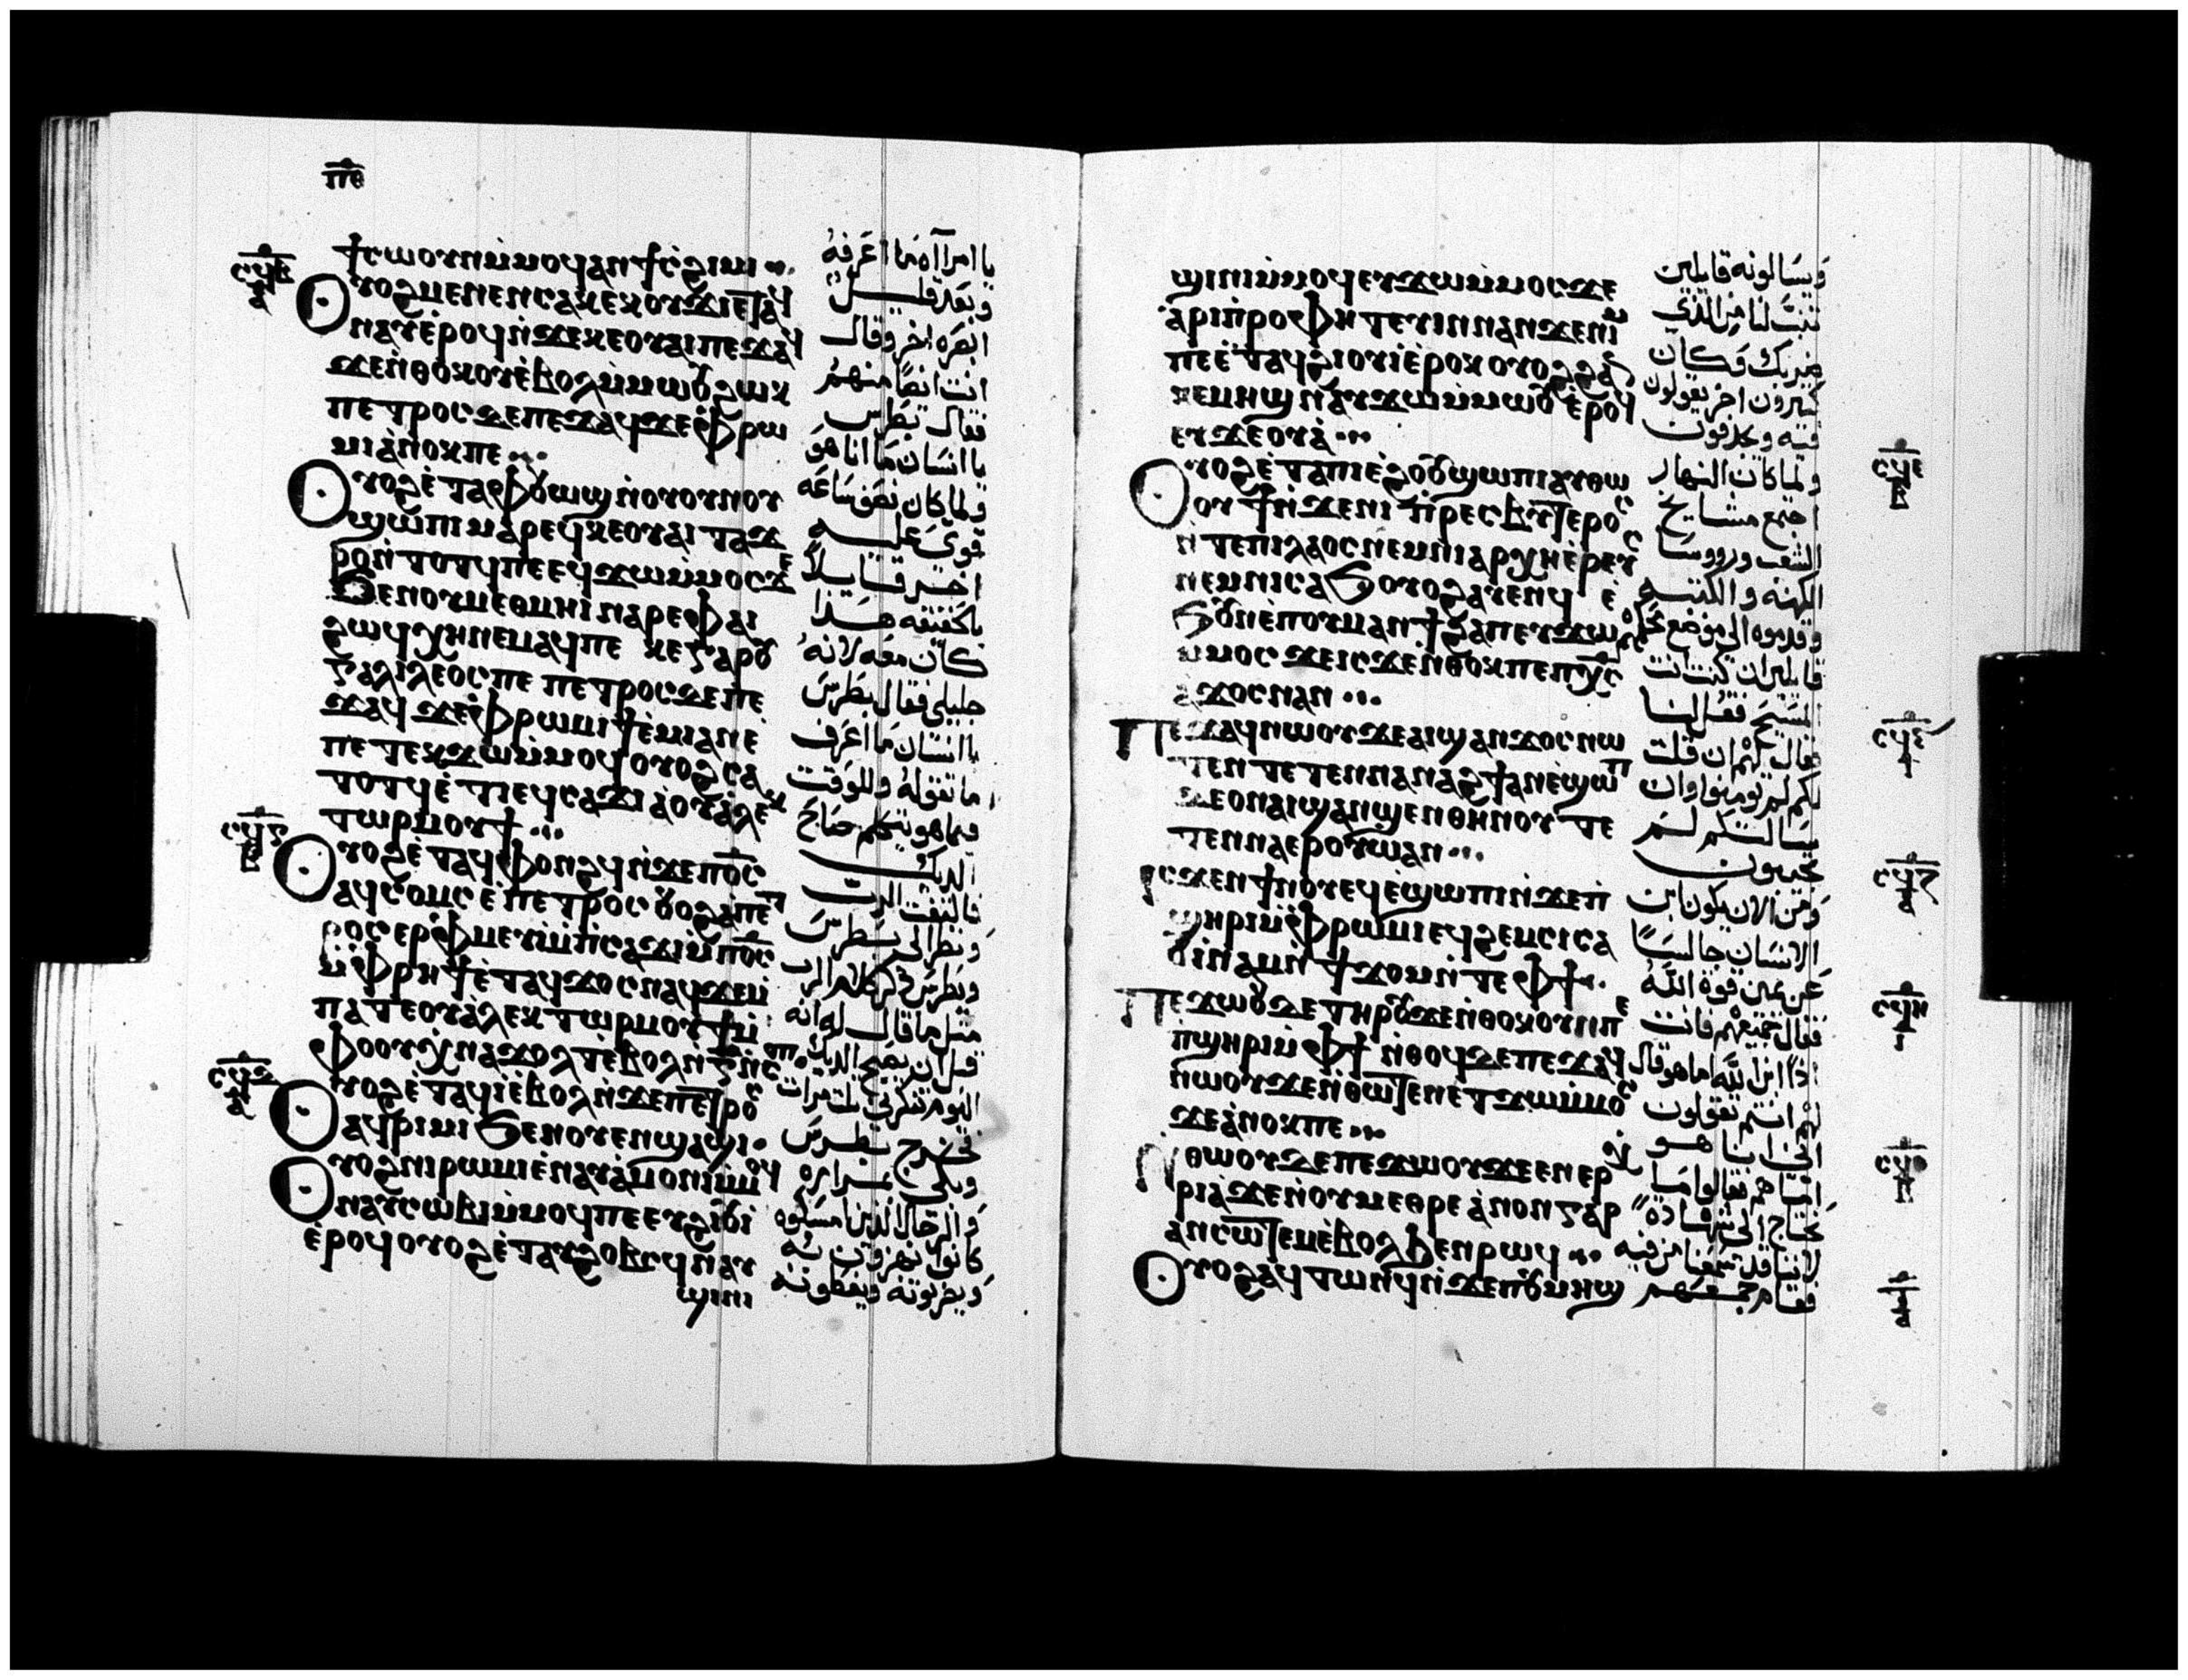 ⲡⲑ
ϯⲥⲱⲟⲩⲛ ⲙ̀ⲙⲟϥ ⲁⲛ ϯⲥϩⲓⲙⲓ
ⲟⲩⲟϩ ⲙⲉⲛⲉⲛⲥⲁ ⲕⲉⲕⲟⲩϫⲓ ⲉⲧⲁϥ
ⲛⲁⲩ ⲉ̀ⲣⲟϥ ⲛ̀ϫⲉ ⲕⲉⲟⲩⲁⲓ ⲡⲉϫⲁϥ
ϫⲉ ⲛ̀ⲑⲟⲕ ⲟⲩⲉ̀ⲃⲟⲗ ⲙ̀ⲙⲱⲟⲩ ϩⲱⲕ
ⲡⲉⲧⲣⲟⲥ ϫⲉ ⲡⲉϫⲁϥ ϫⲉ ⲫⲣⲱ
ⲙⲓ ⲁ̀ⲛⲟⲕ ⲡⲉ
ⲟⲩⲟϩ ⲉ̀ⲧⲁ ⲫⲟⲩⲱϣ ⲛ̀ⲟⲩⲟⲩⲛⲟⲩ
ϣⲱⲡⲓ ⲛⲁⲣⲉϥ ⲕⲉⲟⲩⲁⲓ ⲧⲁϫ
ⲣⲟ ⲛ̀ⲧⲟⲧϥ ⲡⲉ ⲉϥϫⲱ ⲙ̀ⲙⲟⲥ ϫⲉ
ϧⲉⲛ ⲟⲩⲙⲉⲑⲙⲏⲓ ⲛⲁⲣⲉ ⲫⲁⲓ
ϩⲱϥ ⲭⲏ ⲛⲉⲙⲁϥ ⲡⲉ ⲕⲉ ⲅⲁⲣ ⲟⲩ
ⲅⲁⲗⲓⲗⲉⲟⲥ ⲡⲉ ⲡⲉⲧⲣⲟⲥ ϫⲉ ⲡⲉ
ϫⲁϥ ϫⲉ ⲫⲣⲱⲙⲓ ϯⲉ̀ⲙⲓ ⲁⲛ ⲉ̀
ⲡⲉⲧⲉⲕϫⲱ ⲙ̀ⲙⲟϥ ⲟⲩⲟϩ ⲥⲁ
ⲧⲟⲧϥ ⲉ̀ⲧⲓ ⲉϥⲥⲁϫⲓ ⲁ̀ ⲟⲩⲁ̀ⲗⲉⲕ
ⲧⲱⲣ ⲙⲟⲩϯ
ⲟⲩⲟϩ ⲉ̀ⲧⲁϥⲫⲟⲛϩϥ ⲛ̀ϫⲉ ⲡ̅ⲟ̅ⲥ̅
ⲁϥϫⲟⲩϣⲧ ⲉ̀ ⲡⲉⲧⲣⲟⲥ ⲟⲩⲟϩ ⲁ̀ ⲡⲉⲧ
ⲣⲟⲥ ⲉⲣⲫⲙⲉⲩⲓ ⲙ̀ⲡⲥⲁϫⲓ ⲙ̀ⲡ̅ⲟ̅ⲥ̅
ⲙ̀ⲫⲣⲏϯ ⲉ̀ⲧⲁϥϫⲟⲥ ⲛⲁϥ ϫⲉ ⲙ̀
ⲡⲁⲧⲉ ⲟⲩⲁ̀ⲗⲉⲕⲧⲱⲣ ⲙⲟⲩϯ ⲙ̀
ⲫⲟⲟⲩ ⲭⲛⲁϫⲟⲗⲧ ⲉ̀ⲃⲟⲗ ⲛ̀ⲅ ⲛ̀ⲥⲟⲡ
ⲟⲩⲟϩ ⲉ̀ⲧⲁϥⲓ ⲉ̀ⲃⲟⲗ ⲛ̀ϫⲉ ⲡⲉⲧⲣⲟⲥ
ⲁϥⲣⲓⲙⲓ ϧⲉⲛ ⲟⲩⲉⲛϣⲁϣⲓ
ⲟⲩⲟϩ ⲛⲓⲣⲱⲙⲓ ⲉ̀ⲛⲁⲩⲁ̀ⲙⲟⲛⲓ ⲙ̀ⲙⲟϥ
ⲛⲁⲩⲥⲱⲃⲓ ⲙ̀ⲙⲟϥ ⲡⲉ ⲉⲩϩⲓⲟⲩⲓ
ⲉ̀ⲣⲟϥ ⲟⲩⲟϩ ⲉ̀ⲧⲁⲩϩⲟⲃⲥϥ ⲛⲁⲩ
ϣⲓⲛⲓ
يا امرأه ما اعرفه
وبعد قليل
ابصره اخر وقال
انت ايضا منهم
فقال بطرس
يا انسان ما انا هو
ولما كان نصف ساعه
قوي عليه
اخر قايلا
بالحقيقه هذا
كان معه لانه
جليلي فقال بطرس
يا انسان ما اعرف
ما تقوله وللوقت
فيما هو يتكلم صاح
الديك
فالتفت الرب
ونظر الى بطرس
وبطرس ذكر كلام الرب
مثل ما قال له انه
قبل ان يصيح الديك
اليوم تنكرني ثلث مرات
فخرج بطرس
وبكى بمراره
والرجال الذين امسكوه
كانوا يهزون به
ويضربونه ويغطونه
ϣⲓⲛⲓ ⲙ̀ⲙⲟϥ ⲉⲩϫⲱ ⲙ̀ⲙⲟⲥ ϫⲉ
ⲁ̀ⲣⲓⲡⲣⲟⲫⲏⲧⲉⲩⲓⲛ ⲛⲁⲛ ϫⲉ ⲛⲓⲙ
ⲡⲉ ⲉ̀ⲧⲁϥϩⲓⲟⲩⲓ ⲉ̀ⲣⲟⲕ ⲟⲩⲟϩ ϩⲁⲛ
ⲕⲉⲙⲏϣ ⲛⲁⲩϫⲱ ⲙ̀ⲙⲱⲟⲩ ⲉ̀ⲣⲟϥ
ⲉⲩϫⲉⲟⲩⲁ̀
ⲟⲩⲟϩ ⲉ̀ⲧⲁ ⲡⲓⲉ̀ϩⲟⲟⲩ ϣⲱⲡⲓ ⲁⲩⲑⲱ
ⲟⲩϯ ⲛ̀ϫⲉ ⲛⲓⲡⲣⲉⲥⲃⲩⲧⲉⲣⲟⲥ
ⲛ̀ⲧⲉ ⲡⲓⲗⲁⲟⲥ ⲛⲉⲙ ⲛⲓⲁⲣⲭⲏⲉ̀ⲣⲉⲩⲥ
ⲛⲉⲙ ⲛⲓⲥⲁϧ ⲟⲩⲟϩ ⲁⲩⲉⲛϥ ⲉ̀
ϧⲟⲩⲛ ⲉ̀ⲡⲟⲩⲙⲁⲛϯϩⲁⲡ ⲉⲩϫⲱ
ⲙ̀ⲙⲟⲥ ϫⲉ ⲓⲥϫⲉ ⲛ̀ⲑⲟⲕ ⲡⲉ ⲡⲭ̅ⲥ̅
ⲁ̀ϫⲟⲥ ⲛⲁⲛ
ⲡⲉϫⲁϥ ⲛⲱⲟⲩ ϫⲉ ⲁⲓϣⲁⲛϫⲟⲥ ⲛⲱ
ⲧⲉⲛ ⲧⲉⲧⲉⲛⲛⲁⲛⲁϩϯ ⲁⲛ ⲉ̀ϣⲱⲡ
ϫⲉ ⲟⲛ ⲁⲓϣⲁⲛϣⲉⲛ ⲑⲏⲛⲟⲩ ⲧⲉ
ⲧⲉⲛⲛⲁⲉⲣⲟⲩⲱ̀ ⲁⲛ
ⲓⲥϫⲉⲛ ϯⲛⲟⲩ ⲉϥⲉ̀ϣⲱⲡⲓ ⲛ̀ϫⲉ ⲡ
ϣⲏⲣⲓ ⲙ̀ⲫⲣⲱⲙⲓ ⲉϥϩⲉⲙⲥⲓ ⲥⲁ
ⲟⲩⲓ̀ⲛⲁⲙ ⲛ̀ϯϫⲟⲙ ⲛ̀ⲧⲉ ⲫϯ
ⲡⲉϫⲱⲟⲩ ϫⲉ ⲧⲏⲣⲟⲩ ϫⲉ ⲛ̀ⲑⲟⲕ ⲟⲩⲛ ⲡⲉ
ⲡϣⲏⲣⲓ ⲙ̀ⲫϯ ⲛ̀ⲑⲟϥ ϫⲉ ⲡⲉϫⲁϥ
ⲛⲱⲟⲩ ϫⲉ ⲛ̀ⲑⲱⲧⲉⲛ ⲉⲧϫⲱ ⲙ̀ⲙⲟⲥ
ϫⲉ ⲁ̀ⲛⲟⲕ ⲡⲉ
ⲛ̀ⲑⲱⲟⲩ ϫⲉ ⲡⲉϫⲱⲟⲩ ϫⲉ ⲉⲛⲉⲣ
ⲭⲣⲓⲁ ϫⲉ ⲛ̀ⲟⲩⲙⲉⲑⲣⲉ ⲁ̀ⲛⲟⲛ ⲅⲁⲣ
ⲁⲛⲥⲱⲧⲉⲙ ⲉ̀ⲃⲟⲗ ϧⲉⲛ ⲣⲱϥ
ⲟⲩⲟϩ ⲁϥⲧⲱⲛϥ ⲛ̀ϫⲉ ⲡⲟⲩⲙⲏϣ
ويسالونه قايلين
تنبّ لنا من الذي
ضربك وكان
كثيرون اخر يقولون
فيه ويجدفون
ولما كان النهار
اجتمع مشايخ
الشعب وروسا
الكهنه والكتبه
وقدموه الى موضع حكمهم
قايلين ان كنت انت
المسيح فقل لنا
قال لهم ان قلت
لكم لم تومنوا وان
سالتكم لم
تجيبون
ومن الان يكون ابن
الانسان جالسا
عن يمين قوة الله
فقال جميعهم فانت
اذا ابن الله اما هو قال
لهم انتم تقولون
اني انا هو
اما هم فقالوا ما
نحتاج الى شهاده
لاننا قد سمعنا من فيه
فقام جمعهم